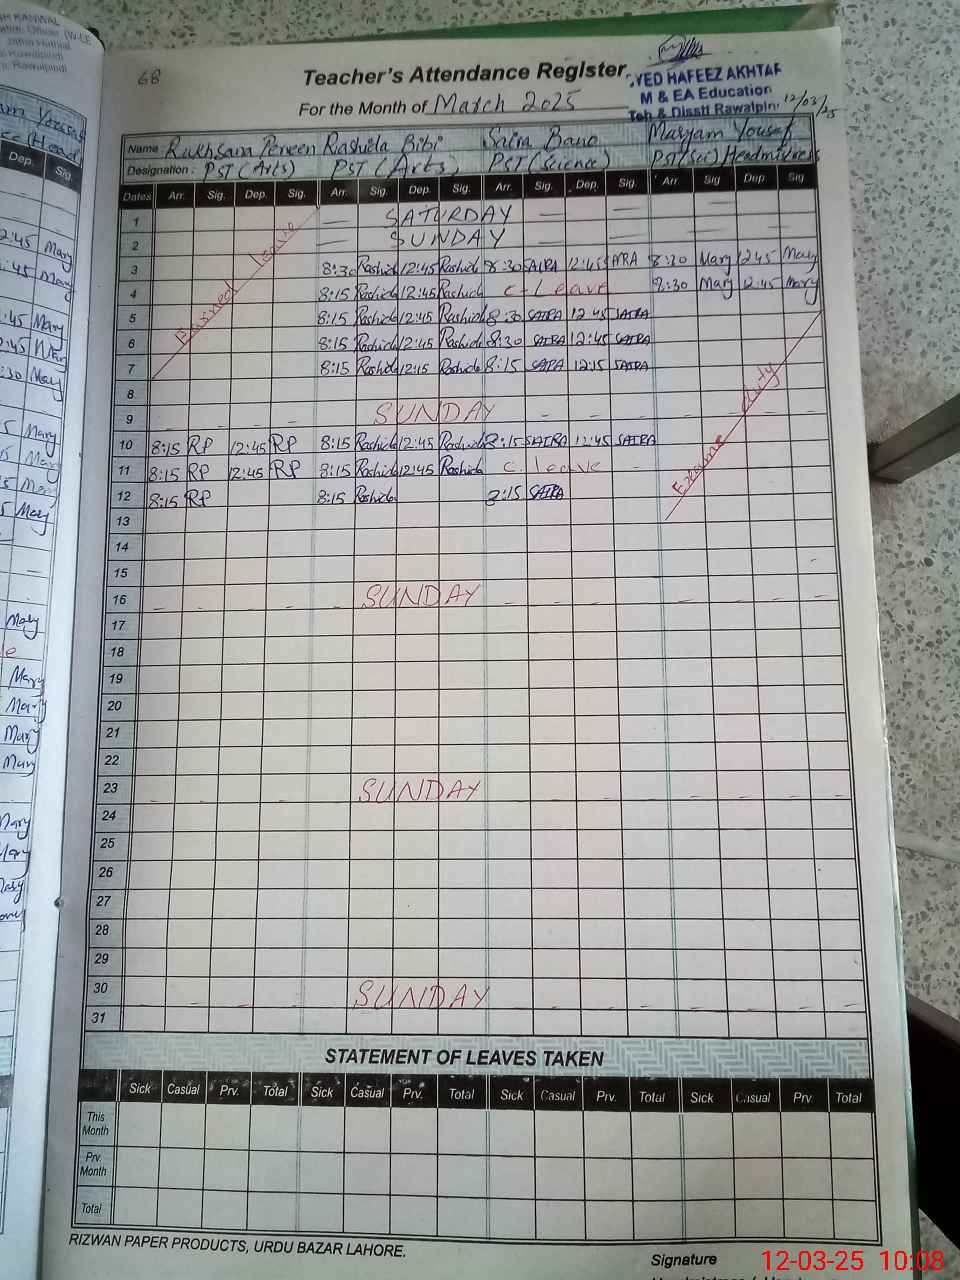 68
Teacher's Attendance Register
SYED HAFEEZ AKHTAR
M & EA Education
Teh & Disstt Rawalpin
12/03/25
For the Month of March 2025
Name Rukhsana Perveen Rashida Bibi Saira Bano Maryam Yousaf
Designation: PST (Arts) PST (Arts) PST (Science) PST (Sci) Headmistress
Dates Arr. Sig. Dep. Sig. Arr. Sig. Dep. Sig. Arr. Sig. Dep. Sig. Arr. Sig Dep. Sig
Earned Leave
1 SATURDAY
2 SUNDAY
3 8:30 Rashida 12:45 Rashida 8:30 SAIRA 12:45 SAIRA 8:30 Mary 12:45 Mary
4 8:15 Rashida 12:45 Rashida C-Leave 8:30 Mary 12:45 Mary
5 8:15 Rashida 12:45 Rashida 8:30 SAIRA 12:45 SAIRA
6 8:15 Rashida 12:45 Rashida 8:30 SAIRA 12:45 SAIRA
7 8:15 Rashida 12:15 Rashida 8:15 SAIRA 12:15 SAIRA
8
9 SUNDAY
Exams duty
10 8:15 RP 12:45 RP 8:15 Rashida 12:45 Rashida 8:15 SAIRA 12:45 SAIRA
11 8:15 RP 12:45 RP 8:15 Rashida 12:45 Rashida C. leave
12 8:15 RP 8:15 Rashida 8:15 SAIRA
13
14
15
16 SUNDAY
17
18
19
20
21
22
23 SUNDAY
24
25
26
27
28
29
30 SUNDAY
31
STATEMENT OF LEAVES TAKEN
Sick Casual Prv. Total Sick Casual Prv. Total Sick Casual Prv. Total Sick Casual Prv. Total
This Month
Prv. Month
Total
RIZWAN PAPER PRODUCTS, URDU BAZAR LAHORE.
Signature
12-03-25 10:08